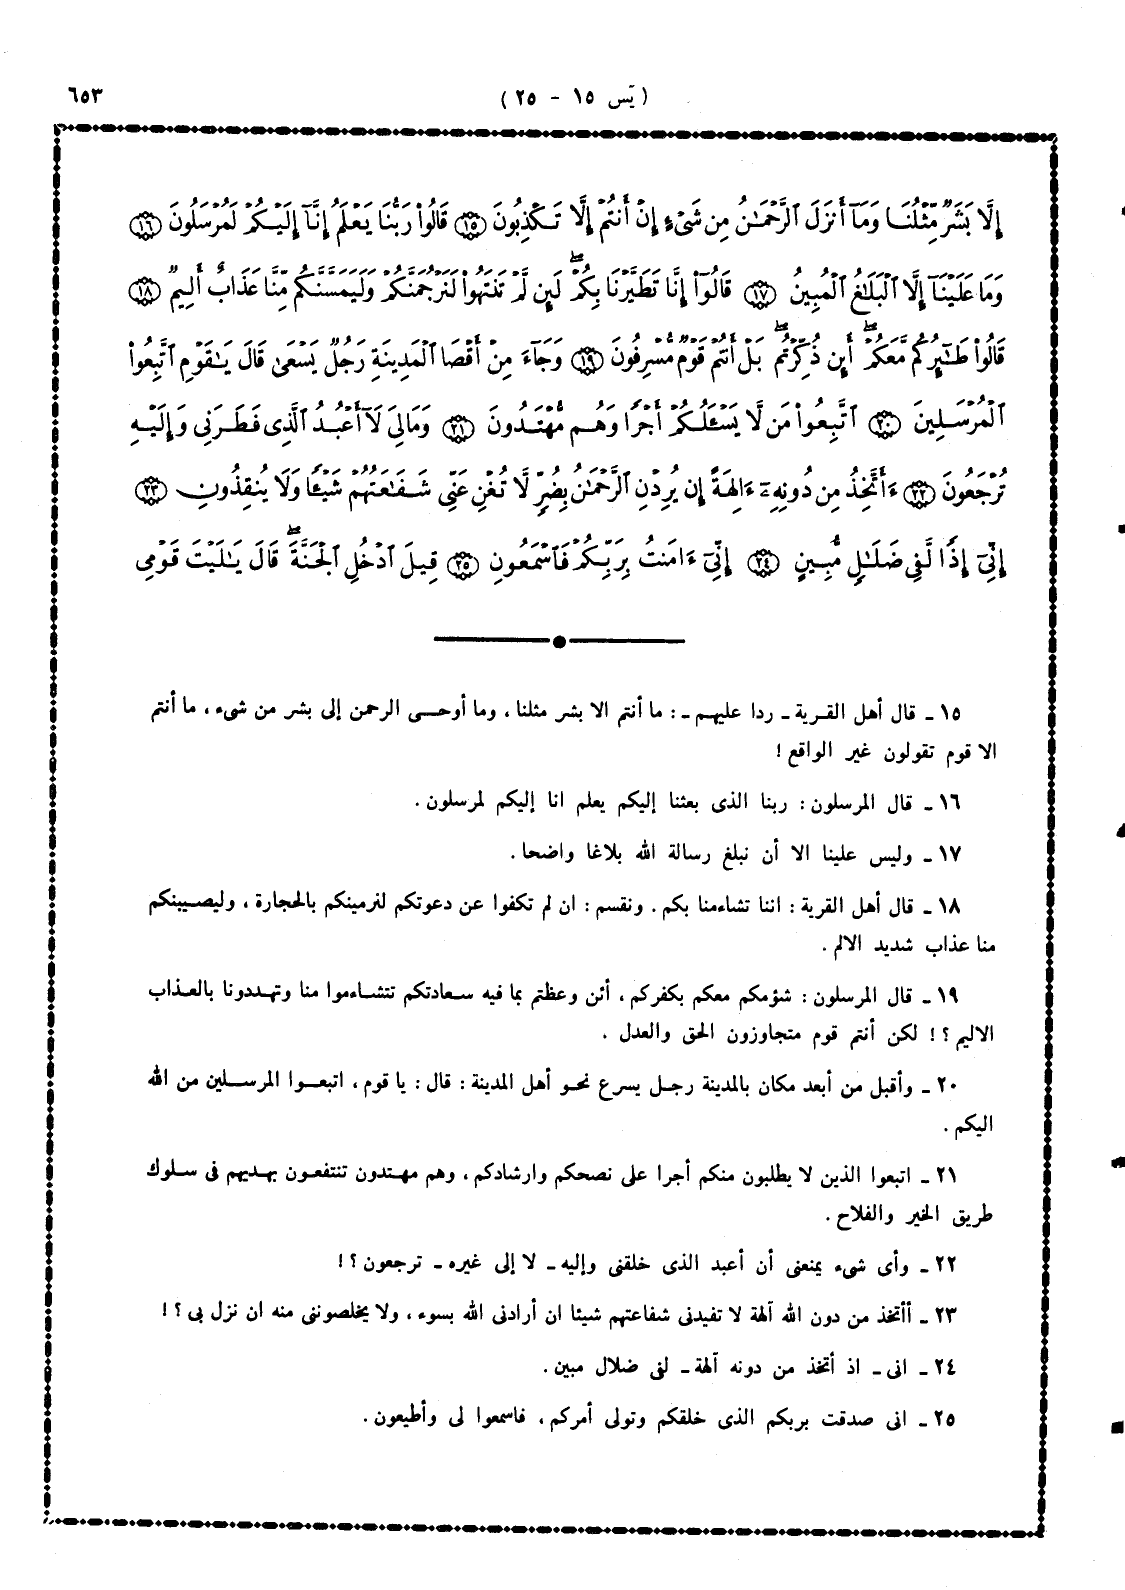 (يّس ١٥ - ٢٥) ٦٥٣
إِلَّا بَشَرٌ مِّثْلُنَا وَمَآ أَنزَلَ ٱلرَّحْمَٰنُ مِن شَىْءٍ إِنْ أَنتُمْ إِلَّا تَكْذِبُونَ ﴿١٥﴾ قَالُوا۟ رَبُّنَا يَعْلَمُ إِنَّآ إِلَيْكُمْ لَمُرْسَلُونَ ﴿١٦﴾
وَمَا عَلَيْنَآ إِلَّا ٱلْبَلَٰغُ ٱلْمُبِينُ ﴿١٧﴾ قَالُوٓا۟ إِنَّا تَطَيَّرْنَا بِكُمْ ۖ لَئِن لَّمْ تَنتَهُوا۟ لَنَرْجُمَنَّكُمْ وَلَيَمَسَّنَّكُم مِّنَّا عَذَابٌ أَلِيمٌ ﴿١٨﴾
قَالُوا۟ طَٰٓئِرُكُم مَّعَكُمْ ۖ أَئِن ذُكِّرْتُم ۖ بَلْ أَنتُمْ قَوْمٌ مُّسْرِفُونَ ﴿١٩﴾ وَجَآءَ مِنْ أَقْصَا ٱلْمَدِينَةِ رَجُلٌ يَسْعَىٰ قَالَ يَٰقَوْمِ ٱتَّبِعُوا۟
ٱلْمُرْسَلِينَ ﴿٢٠﴾ ٱتَّبِعُوا۟ مَن لَّا يَسْـَٔلُكُمْ أَجْرًا وَهُم مُّهْتَدُونَ ﴿٢١﴾ وَمَالِىَ لَآ أَعْبُدُ ٱلَّذِى فَطَرَنِى وَإِلَيْهِ
تُرْجَعُونَ ﴿٢٢﴾ ءَأَتَّخِذُ مِن دُونِهِۦٓ ءَالِهَةً إِن يُرِدْنِ ٱلرَّحْمَٰنُ بِضُرٍّ لَّا تُغْنِ عَنِّى شَفَٰعَتُهُمْ شَيْـًٔا وَلَا يُنقِذُونِ ﴿٢٣﴾
إِنِّىٓ إِذًا لَّفِى ضَلَٰلٍ مُّبِينٍ ﴿٢٤﴾ إِنِّىٓ ءَامَنتُ بِرَبِّكُمْ فَٱسْمَعُونِ ﴿٢٥﴾ قِيلَ ٱدْخُلِ ٱلْجَنَّةَ ۖ قَالَ يَٰلَيْتَ قَوْمِى
١٥ ـ قال أهل القرية ـ ردا عليهم ـ : ما أنتم الا بشر مثلنا ، وما أوحى الرحمن إلى بشر من شىء ، ما أنتم
الا قوم تقولون غير الواقع !
١٦ ـ قال المرسلون : ربنا الذى بعثنا إليكم يعلم انا إليكم لمرسلون .
١٧ ـ وليس علينا الا أن نبلغ رسالة الله بلاغا واضحا .
١٨ ـ قال أهل القرية : اننا تشاءمنا بكم . ونقسم : ان لم تكفوا عن دعوتكم لنرمينكم بالحجارة ، وليصيبنكم
منا عذاب شديد الالم .
١٩ ـ قال المرسلون : شؤمكم معكم بكفركم ، أئن وعظتم بما فيه سعادتكم تتشاءموا منا وتهددونا بالعذاب
الاليم ؟ ! لكن أنتم قوم متجاوزون الحق والعدل .
٢٠ ـ وأقبل من أبعد مكان بالمدينة رجل يسرع نحو أهل المدينة : قال : يا قوم ، اتبعوا المرسلين من الله
اليكم .
٢١ ـ اتبعوا الذين لا يطلبون منكم أجرا على نصحكم وارشادكم ، وهم مهتدون تنتفعون بهديهم فى سلوك
طريق الخير والفلاح .
٢٢ ـ وأى شىء يمنعنى أن أعبد الذى خلقنى وإليه ـ لا إلى غيره ـ ترجعون ؟ !
٢٣ ـ أأتخذ من دون الله آلهة لا تفيدنى شفاعتهم شيئا ان أرادنى الله بسوء ، ولا يخلصوننى منه ان نزل بى ؟ !
٢٤ ـ انى ـ اذ أتخذ من دونه آلهة ـ لفى ضلال مبين .
٢٥ ـ انى صدقت بربكم الذى خلقكم وتولى أمركم ، فاسمعوا لى وأطيعون .